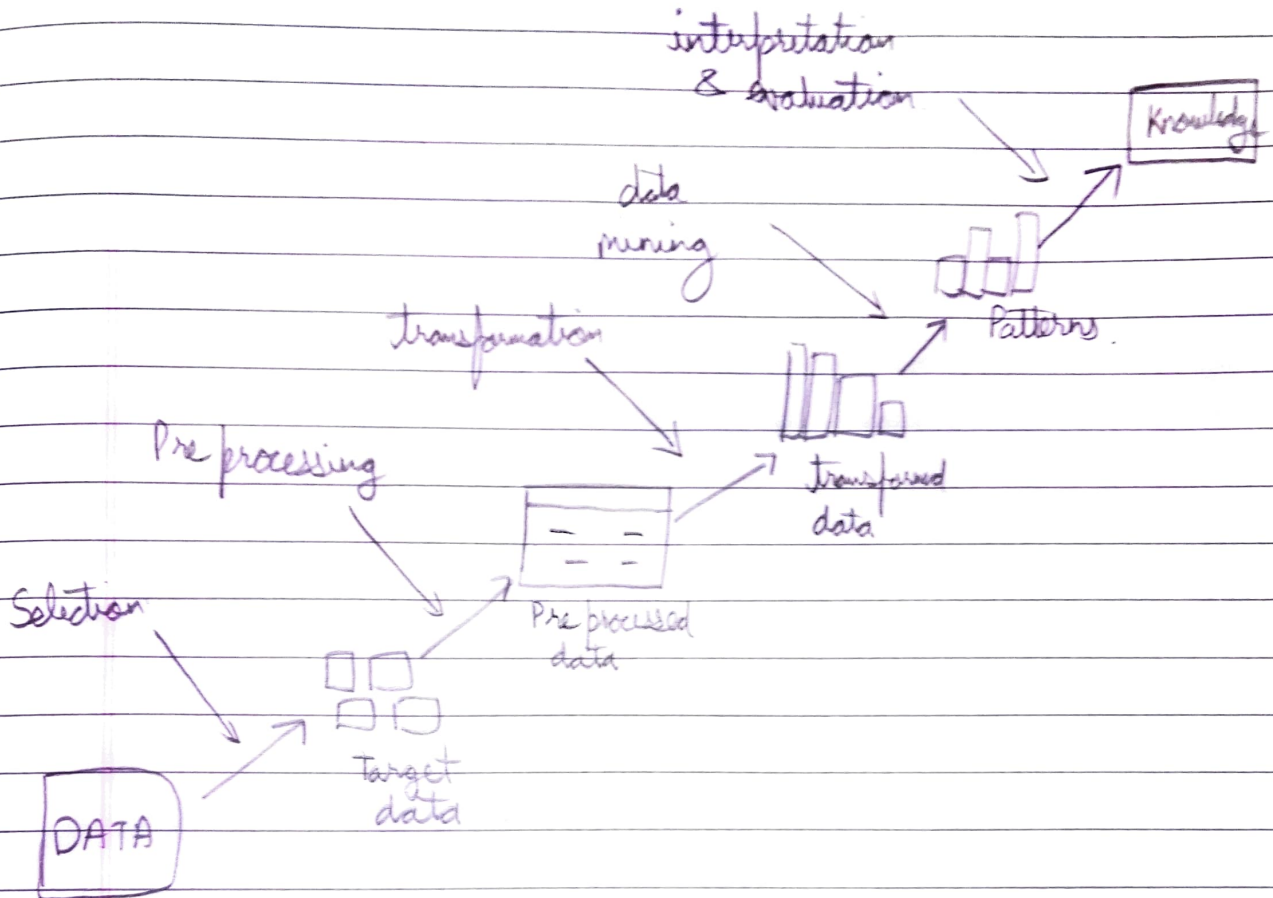 interpretation
& evaluation
Knowledge
data
mining
Patterns.
transformation
transformed
data
Pre processing
Pre processed
data
Selection
Target
data
DATA